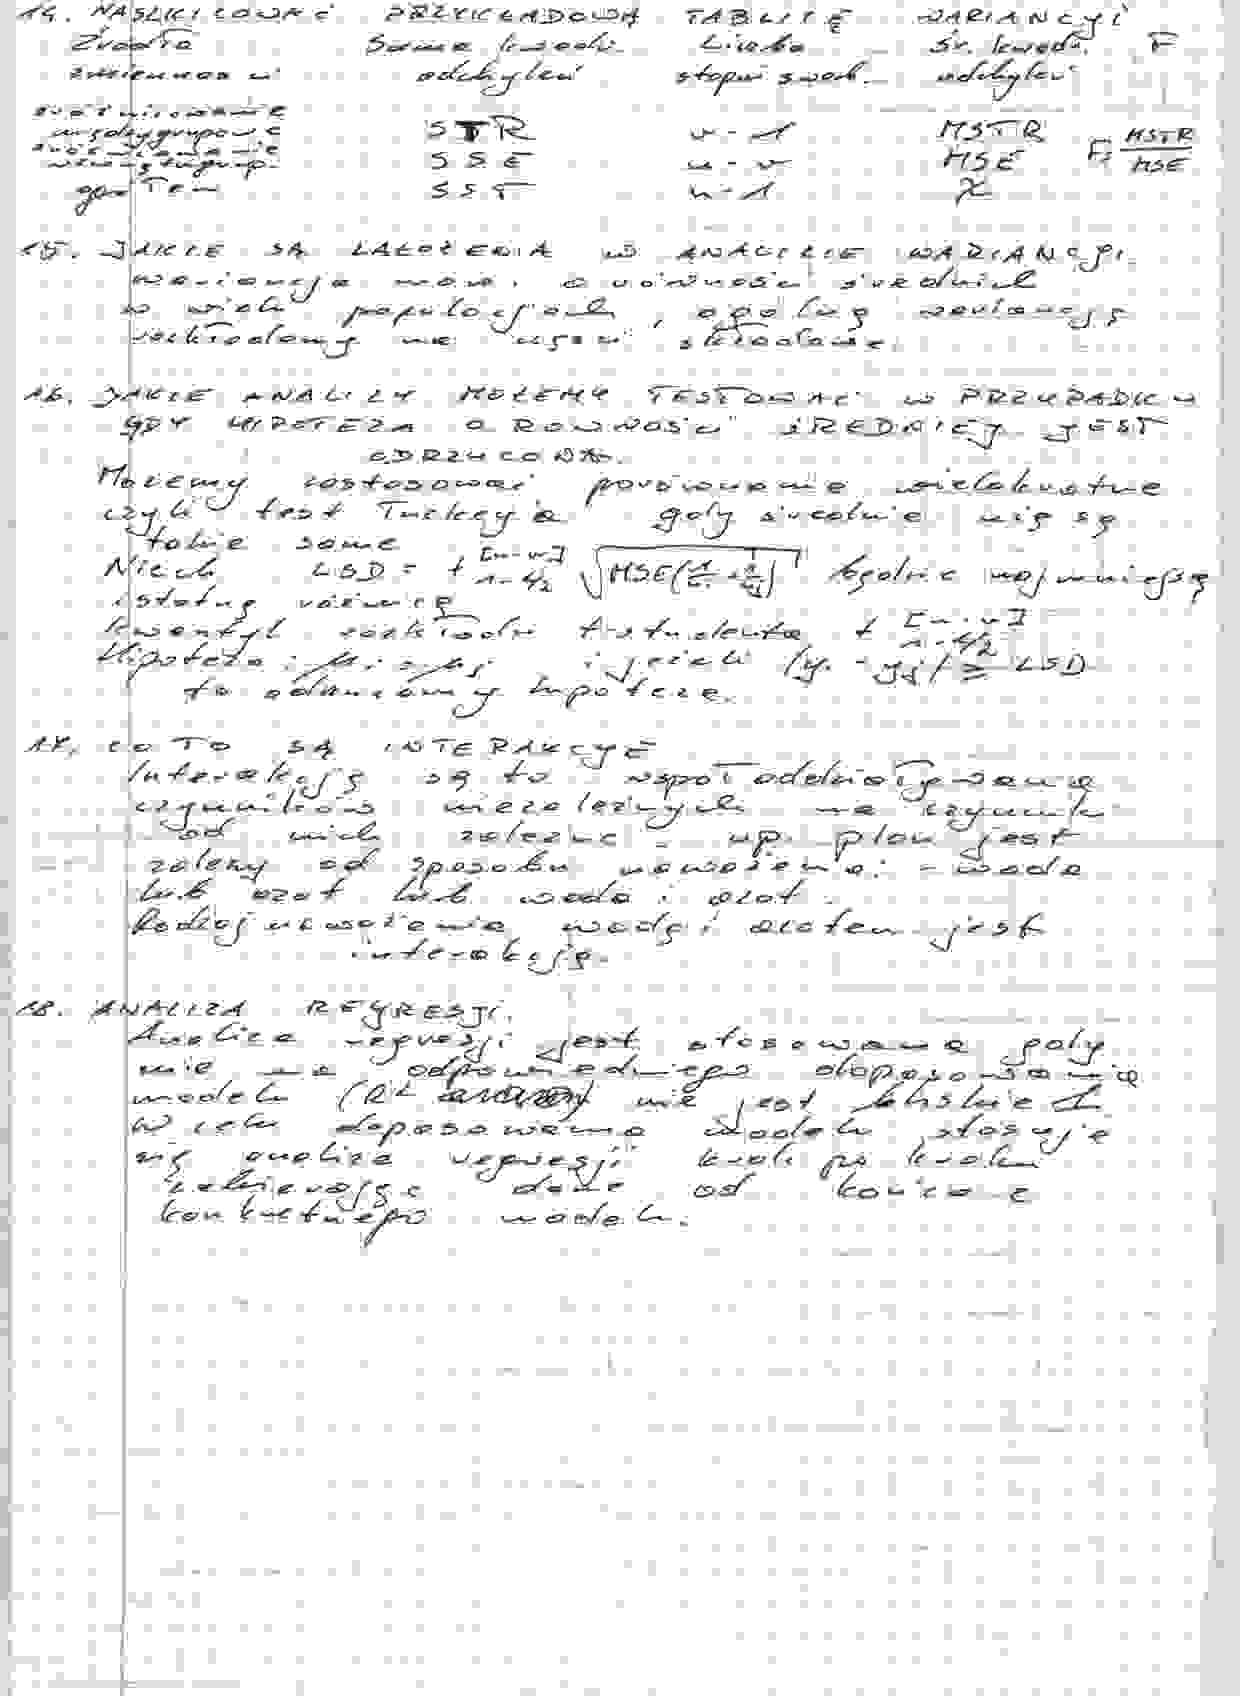 14. NASZKICOWAĆ PRZYKŁADOWĄ TABLICĘ WARIANCYI
Źródła Suma kwadr. Liczba śr. kwadr. F
zmienności odchyleń stopni swob. odchyleń
zróżnicowanie
międzygrupowe STR v-1 MSTR F= MSTR/MSE
zróżnicowanie
wewnątrzgrup. SSE n-v MSE
SST n-1 X
15. JAKIE SĄ ZAŁOŻENIA W ANALIZIE WARIANCJI.
wariancja mów. o równości średnich
w wielu populacjach, ogólną wariancję
rozkładamy na sumy składowe.
16. JAKIE ANALIZY MOŻEMY TESTOWAĆ W PRZYPADKU
GDY HIPOTEZA O RÓWNOŚCI ŚREDNIEJ JEST
ODRZUCONA.
Możemy zastosować porównanie wielokrotne
czyli test Tuckey'a gdy średnie nie są
takie same
Niech LSD = t [n-v] 1-α/2 √MSE(1/ni + 1/nj) będzie najmniejszą
istotną różnicą
kwantyl rozkładu t-studenta t [n-v] 1-α/2
Hipoteza: μi = μj i jeżeli |yi - yj| ≥ LSD
to odrzucamy hipotezę.
17. CO TO SĄ INTERAKCYE
Interakcję są to współoddziaływania
czynników niezależnych na czynnik
od nich zależne - np. plon jest
zależny od sposobu nawożenia: - woda
lub azot lub woda i azot.
Rodzaj nawożenia wodą i azotem jest
interakcją.
18. ANALIZA REGRESJI.
Analiza regresji jest stosowana gdy
nie ma odpowiedniego dopasowania
modelu (R² nie jest bliskie 1
W celu dopasowania modelu stosuje
się analizę regresji krok po kroku
dane od końca z
konkretnego modelu.